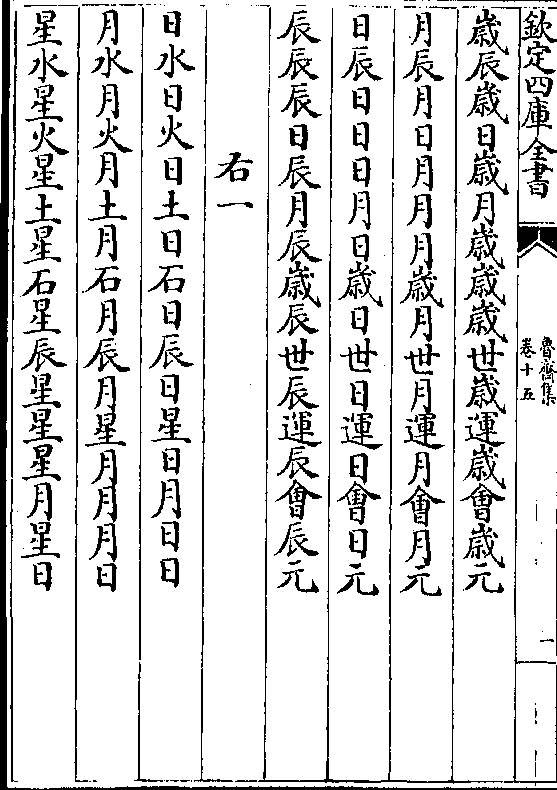 欽定四庫全書
魯齋集
卷十五
一
歳辰歳日歳月歳歳歳世歳運歳會歳元
月辰月日月月月歳月世月運月會月元
日辰日日日月日歳日世日運日會日元
辰辰辰日辰月辰歳辰世辰運辰會辰元
右一
日水日火日土日石日辰日星日月日日
月水月火月土月石月辰月星月月月日
星水星火星土星石星辰星星星月星日